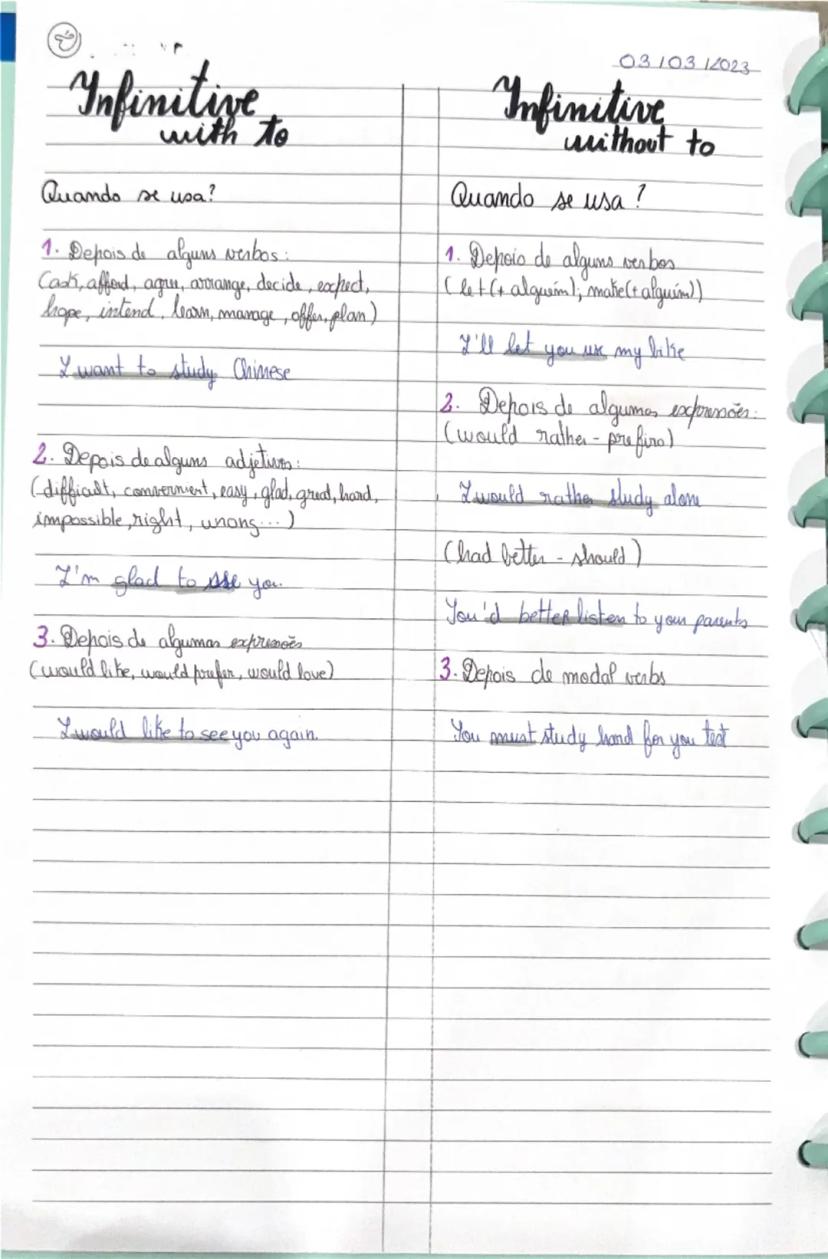 03/03/2023
Infinitive
with to
Quando se usa?
1. Depois de alguns verbos:
(ask, afford, agree, arrange, decide, expect,
hope, intend, learn, manage, offer, plan)
I want to study Chinese
2. Depois de alguns adjetivos:
(difficult, convernient, easy, glad, great, hard,
impossible, right, wrong...)
I'm glad to see you.
3. Depois de algumas expressões
(would like, would prefer, would love)
I would like to see you again.
Infinitive
without to
Quando se usa?
1. Depois de alguns verbos
(let (+ alguém); make (+ alguém))
I'll let you use my bike
2. Depois de algumas expressões:
(would rather - prefiro)
I would rather study alone
(had better - should)
You'd better listen to your parents
3. Depois de modal verbs
You must study hard for you test